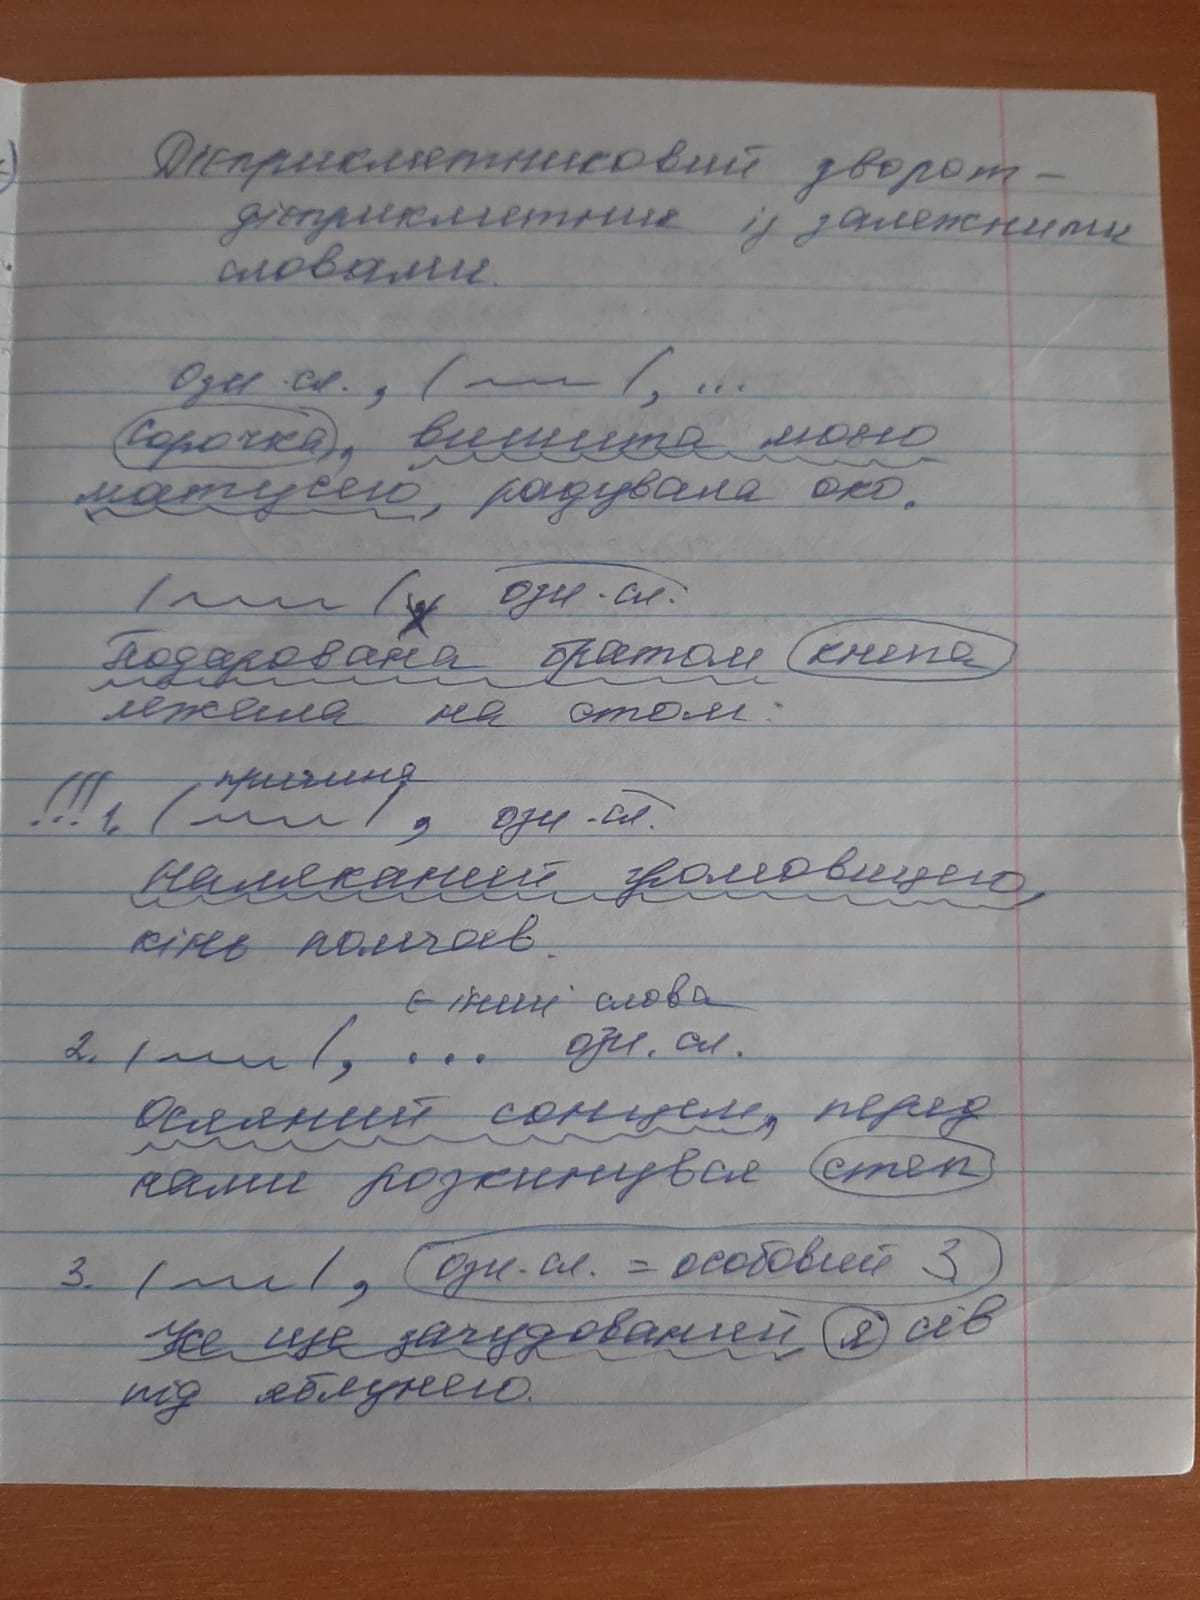 Дієприкметниковий зворот –
дієприкметник із залежними
словами.
Озн. сл., / ~~~ /, ...
Сорочка, вишита моєю
матусею, радувала око.
/ ~~~ / озн. сл.
Подарована братом книга
лежала на столі.
причина
!!! 1. / ~~~ /, озн. сл.
Наляканий громовицею,
кінь помчав.
є інші слова
2. / ~~~ /, ... озн. сл.
Осяяний сонцем, перед
нами розкинувся степ
3. / ~~~ /, озн. сл. = особовий З
Уже ще зачудований я сів
під яблунею.